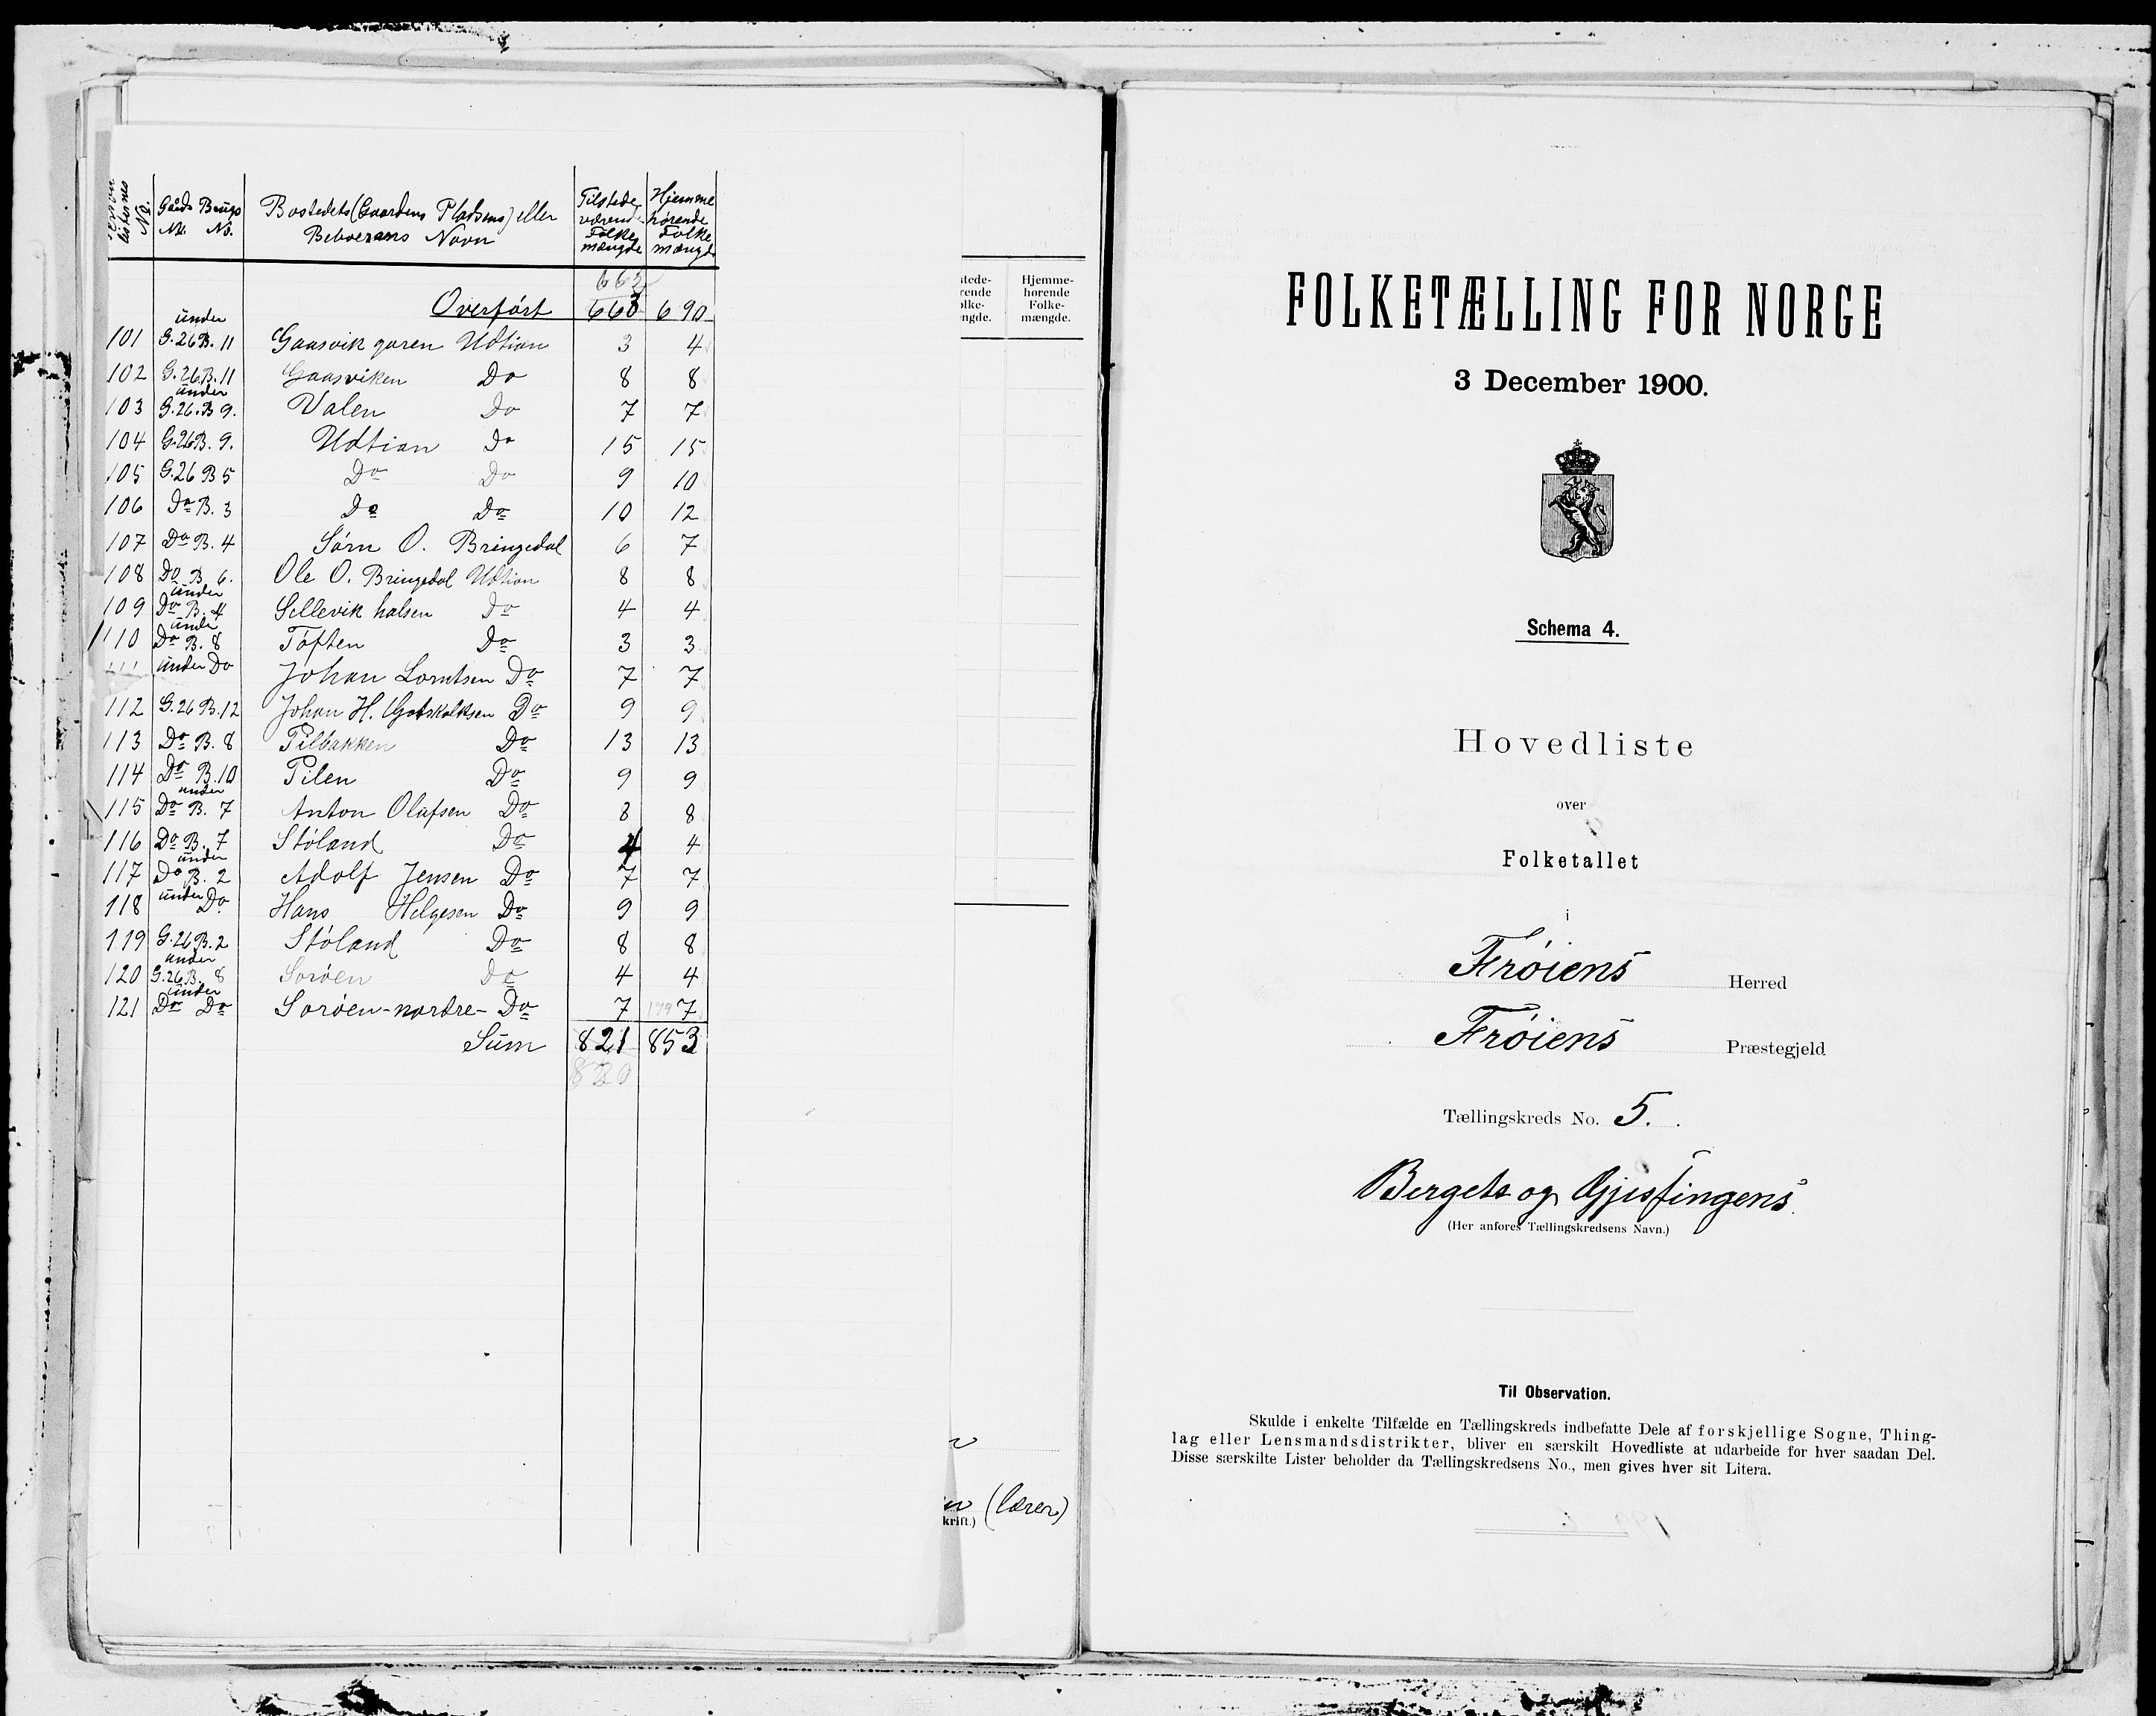 Person
listernes
No.
Gårds Brugs
No. No.
Bostedets (Gaardens Pladsens) eller
Beboerens Navn
Tilstede
værende
Folke
mængde
Hjemme
hørende
Folke
mængde
662
Overført 663 690
under
101 G. 26 B. 11 Gaasvik Udtian 3 4
102 G. 26 B. 11 Gaasviken Do 8 8
under
103 G. 26. B 9. Valen Do 7 7
104 G. 26 B. 9. Udtian Do 15 15
105 G. 26 B 5 Do Do 9 10
106 Do B. 3 Do Do 10 12
107 Do B. 4 Sørn O. Bringedal 6 7
108 Do B. 6. Ole O. Bringedal Udtian 8 8
under
109 Do B. 4 Sellevik halsen Do 4 4
unde
110 Do B. 8 Tøften Do 3 3
111 under Do Johan Lorntsen Do 7 7
112 G. 26 B. 12 Johan H. Gotskalksen Do 9 9
113 Do B. 8 Pilbakken Do 13 13
114 Do B. 10 Pilen Do 9 9
under
115 Do B. 7 Anton Olufsen Do 8 8
116 Do B. 7 Støland Do 4 4
under
117 Do B. 2 Adolf Jensen Do 7 7
118 under Do Hans Helgesen Do 9 9
119 G. 26 B. 2 Støland Do 8 8
under
120 G. 26 B. 8 Sorøen Do 4 4
under
121 Do Do Sorøen-nordre- Do 7 7
Sum 821 853
820
stede-
rende
olke-
ngde.
Hjemme-
hørende
Folke-
mængde.
(lærer)
krift.)
FOLKETÆLLING FOR NORGE
3 December 1900.
Schema 4.
Hovedliste
over
Folketallet
i
Frøiens Herred
Frøiens Præstegjeld
Tællingskreds No. 5.
Bergets og Gjesingens
(Her anføres Tællingskredsens Navn.)
Til Observation.
Skulde i enkelte Tilfælde en Tællingskreds indbefatte Dele af forskjellige Sogne, Thing-
lag eller Lensmandsdistrikter, bliver en særskilt Hovedliste at udarbeide for hver saadan Del.
Disse særskilte Lister beholder da Tællingskredsens No., men gives hver sit Litera.